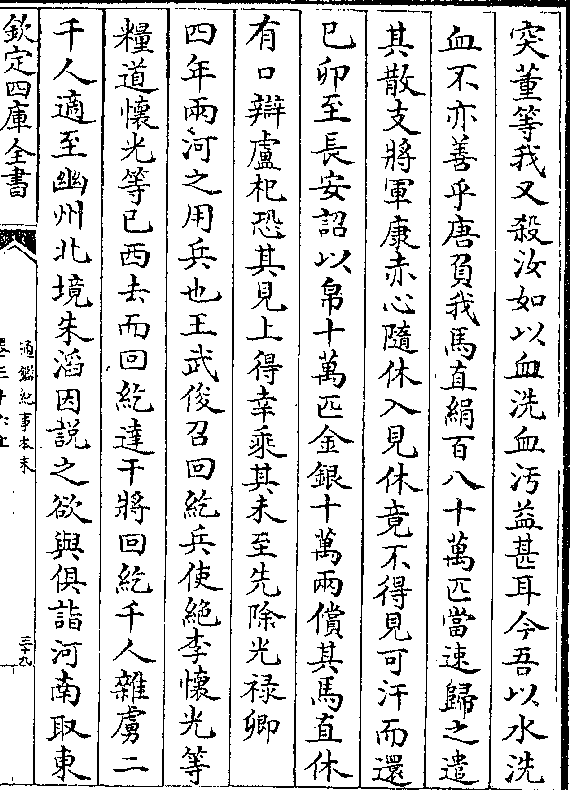 突董等我又殺汝如以血洗血汚益甚耳今吾以水洗
血不亦善乎唐負我馬直絹百八十萬匹當速歸之遣
其散支將軍康赤心隨休入見休竟不得見可汗而還
已卯至長安詔以帛十萬匹金銀十萬兩償其馬直休
有口辯盧杞恐其見上得幸乘其未至先除光禄卿
四年兩河之用兵也王武俊召回紇兵使絶李懷光等
糧道懷光等已西去而回紇達干將回紇千人雜虜二
千人適至幽州北境朱滔因説之欲與俱詣河南取東
欽定四庫全書
通鑑紀事本末
三十九